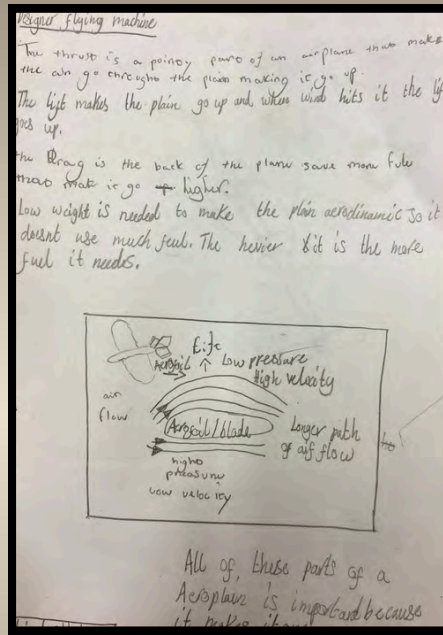 Designer flying machine
The thrust is a poinoy part of an airplane thao make
the air go througho the plain making it go up.
The lift makes the plain go up and when wind hits it the lif
goes up.
the Drag is the back of the plane save more fule
thao mak it go higher.
Low weight is needed to make the plain aerodinamic so it
doesnt use much feul. The hevier it is the more
fuel it needs.
Life
Aerofoil
Low pressure
High velocity
air
flow
Aerofoil/blade
Longer path
of air flow
higho
preasure
Low velocity
All of these parts of a
Aeroplain is importand because
it makes it